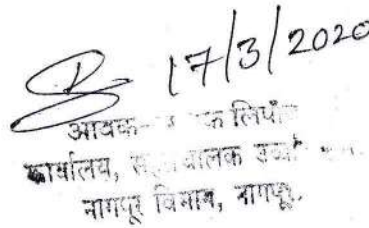 17/3/2020
आवक- क लिपीक
कार्यालय, सहसंचालक उच्च
नागपूर विभाग, नागपूर.